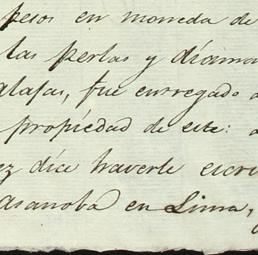 pesos en moneda de
las perlas y diaman
alajas, fue entregado a
propiedad de este: a
ez dice haverle escri
asanoba en Lima,